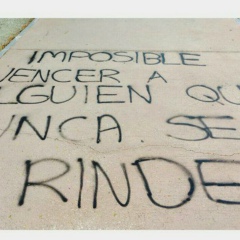 IMPOSIBLE
VENCER A
ALGUIEN QUE
NUNCA SE
RINDE